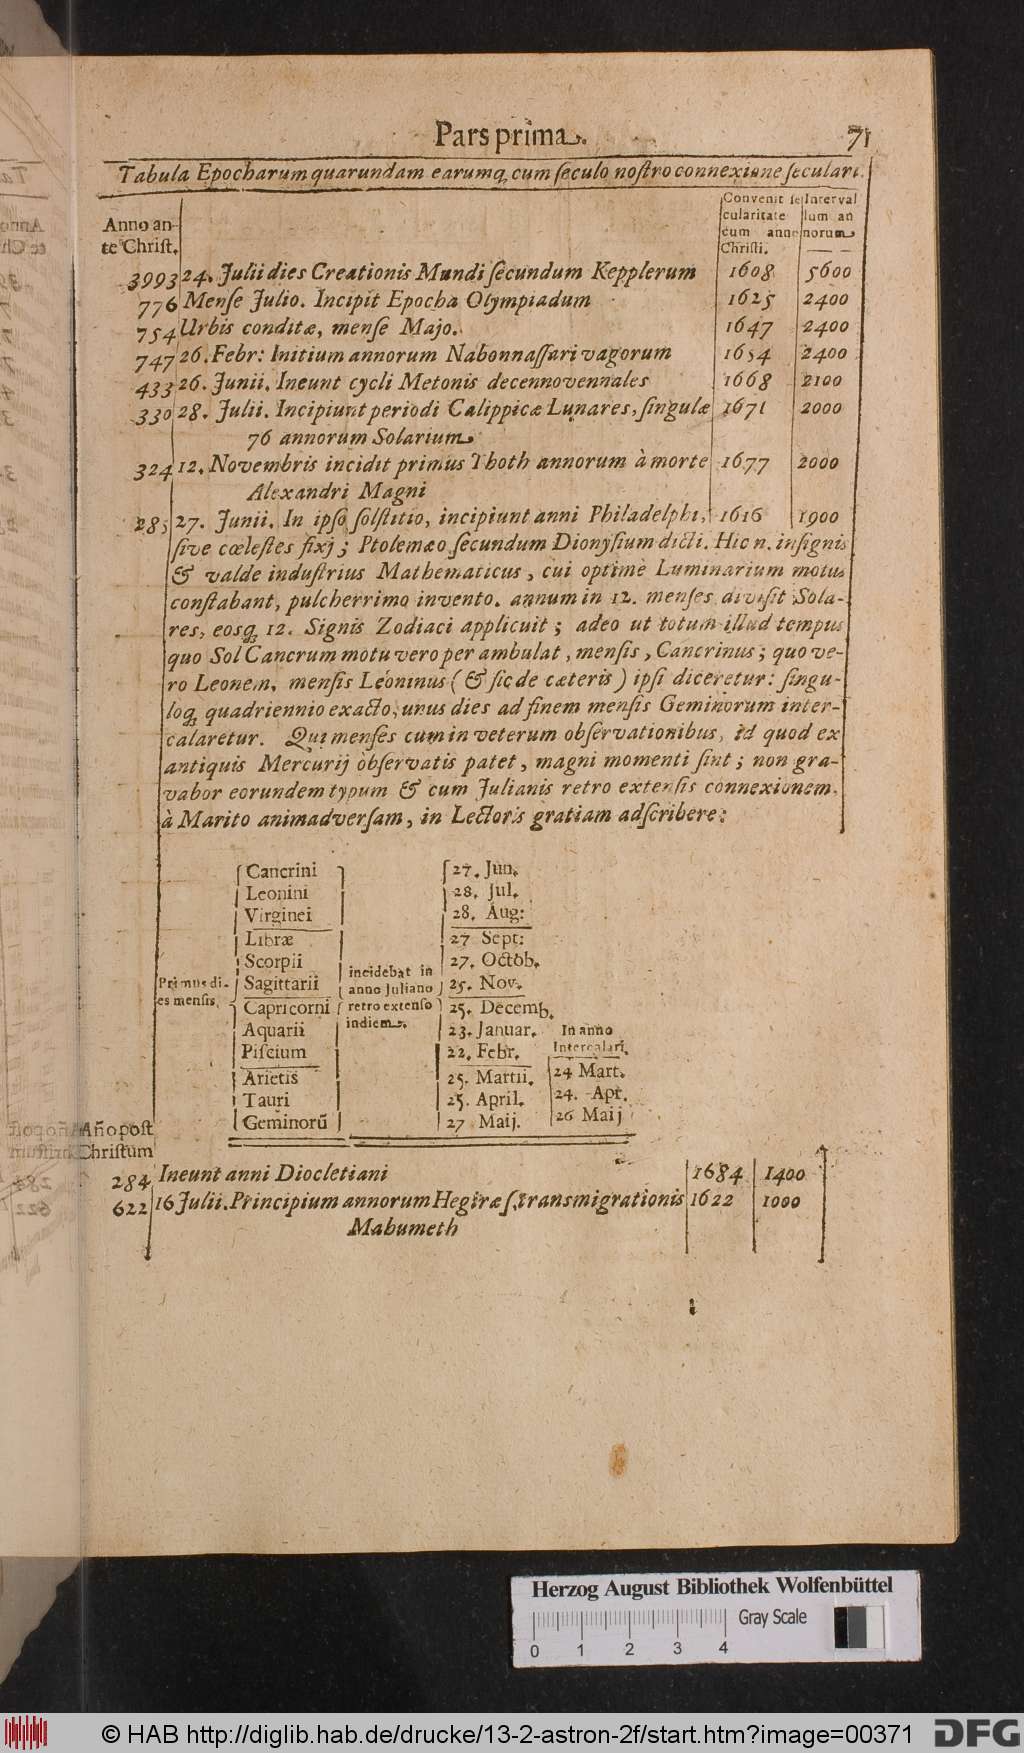 Pars prima.
71
Tabula Epocharum quarundam earumq; cum seculo nostro connexione seculari.
Anno an-
te Christ.
Convenit se
cularitate
cum anno
Christi.
Interval
lum an
norum
3993 24. Julii dies Creationis Mundi secundum Kepplerum 1608 5600
776 Mense Julio. Incipit Epocha Olympiadum 1625 2400
754 Urbis conditæ, mense Majo. 1647 2400
747 26. Febr: Initium annorum Nabonnassari vagorum 1654 2400
433 26. Junii. Ineunt cycli Metonis decennovennales 1668 2100
330 28. Julii. Incipiunt periodi Calippicæ Lunares, singulæ 1671 2000
76 annorum Solarium
324 12. Novembris incidit primus Thoth annorum à morte 1677 2000
Alexandri Magni
285 27. Junii. In ipso solstitio, incipiunt anni Philadelphi, 1616 1900
sive cœlestes fixj; Ptolemæo secundum Dionysium dicti. Hic n. insignis
& valde industrius Mathematicus, cui optime Luminarium motus
constabant, pulcherrimo invento. annum in 12. menses divisit Sola-
res, eosq; 12. Signis Zodiaci applicuit; adeo ut totum illud tempus
quo Sol Cancrum motu vero per ambulat, mensis, Cancrinus; quo ve-
ro Leonem, mensis Leoninus (& sic de cæteris) ipsi diceretur: singu-
loq; quadriennio exacto, unus dies ad finem mensis Geminorum inter-
calaretur. Qui menses cum in veterum observationibus, id quod ex
antiquis Mercurij observatis patet, magni momenti sint; non gra-
vabor eorundem typum & cum Julianis retro extensis connexionem,
à Marito animadversam, in Lectoris gratiam adscribere:
Primus di-
es mensis,
Cancrini
Leonini
Virginei
Libræ
Scorpii
Sagittarii
Capricorni
Aquarii
Piscium
Arietis
Tauri
Geminorū
incidebat in
anno Juliano
retro extenso
in diem
27. Jun.
28. Jul.
28. Aug:
27 Sept:
27. Octob.
25. Nov.
25. Decemb.
23. Januar.
22. Febr.
25. Martii.
25. April.
27 Maij.
In anno
Intercalari.
24 Mart.
24. Apr.
26 Maij
Año post
Christum
284 Ineunt anni Diocletiani 1684 1400
622 16 Julii. Principium annorum Hegiræ s. transmigrationis 1622 1000
Mahumeth
Herzog August Bibliothek Wolfenbüttel
Gray Scale
0 1 2 3 4
© HAB http://diglib.hab.de/drucke/13-2-astron-2f/start.htm?image=00371
DFG